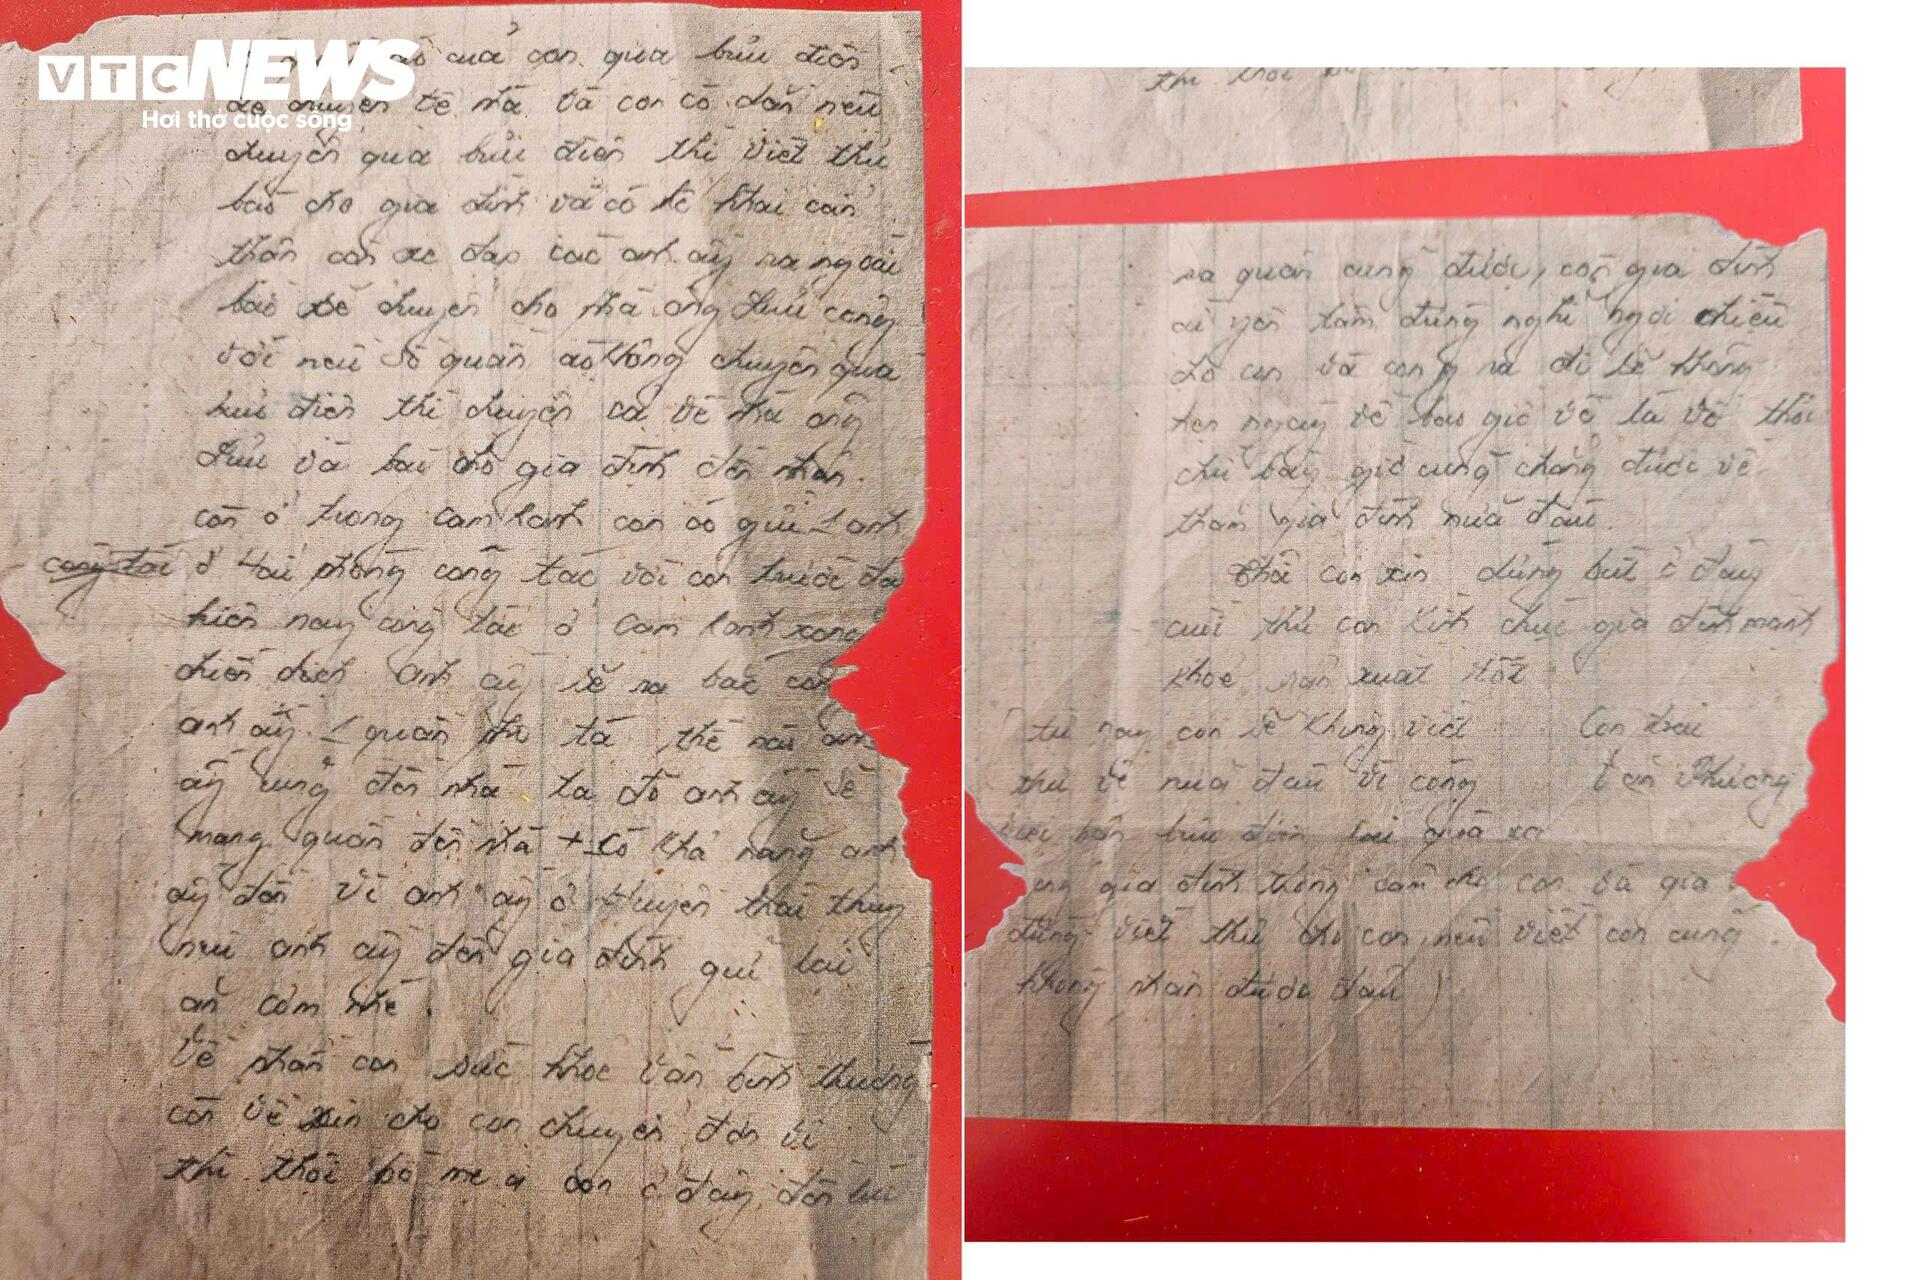 VTC NEWS
Hơi thở cuộc sống
của con qua bưu điện
chuyển về nhà và con có dặn nếu
chuyển qua bưu điện thì viết thư
báo cho gia đình và có kê khai cẩn
thận còn các anh ấy ra ngoài
bảo để chuyển cho nhà ông Lưu cũng
với nếu số quần áo không chuyển qua
bưu điện thì chuyển cả về nhà ông
Lưu và báo cho gia đình đến nhận.
còn ở trong cam ranh con có gửi 1 anh
ở Hải phòng công tác với con trước đây
hiện nay công tác ở Cam Ranh xong
chiến dịch anh ấy sẽ ra bắc con
anh ấy 1 quần thế nào anh
ấy cũng đến nhà ta đó anh ấy về
mang quần đến nhà có khả năng anh
ấy đến vì anh ấy ở Huyện thái thuỵ
nếu anh ấy đến gia đình giữ lại
ăn cơm nhé.
Về phần con sức khoẻ vẫn bình thường
còn về xin cho con chuyển đơn vị
thì thôi bố mẹ ạ con ở đây đến lúc
thì thôi bố mẹ
ra quân cũng được, còn gia đình
cứ yên tâm đừng nghĩ ngợi nhiều
cho con và con ra đi sẽ không
hẹn ngày về bao giờ về là về thôi
chứ bây giờ cũng chẳng được về
thăm gia đình nữa đâu.
Thôi con xin dừng bút ở đây
cuối thư con kính chúc gia đình mạnh
khoẻ sản xuất tốt
(từ nay con sẽ không viết Con trai
thư về nữa đâu vì công Phương
bận bưu điện lại quá xa
gia đình thông cảm cho con và gia
đừng viết thư cho con nếu viết con cũng
không nhận được đâu)